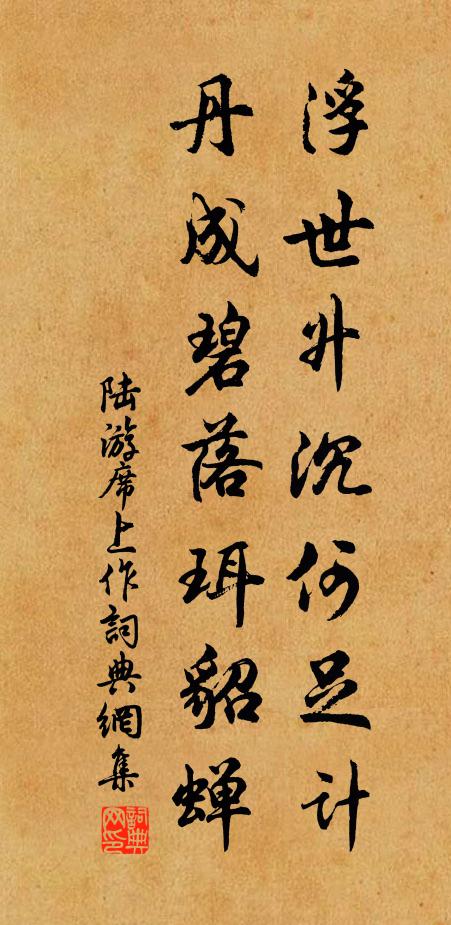 浮世升沉何足计
丹成碧落珥貂蝉
陆游席上作詞典網集
詞典网印